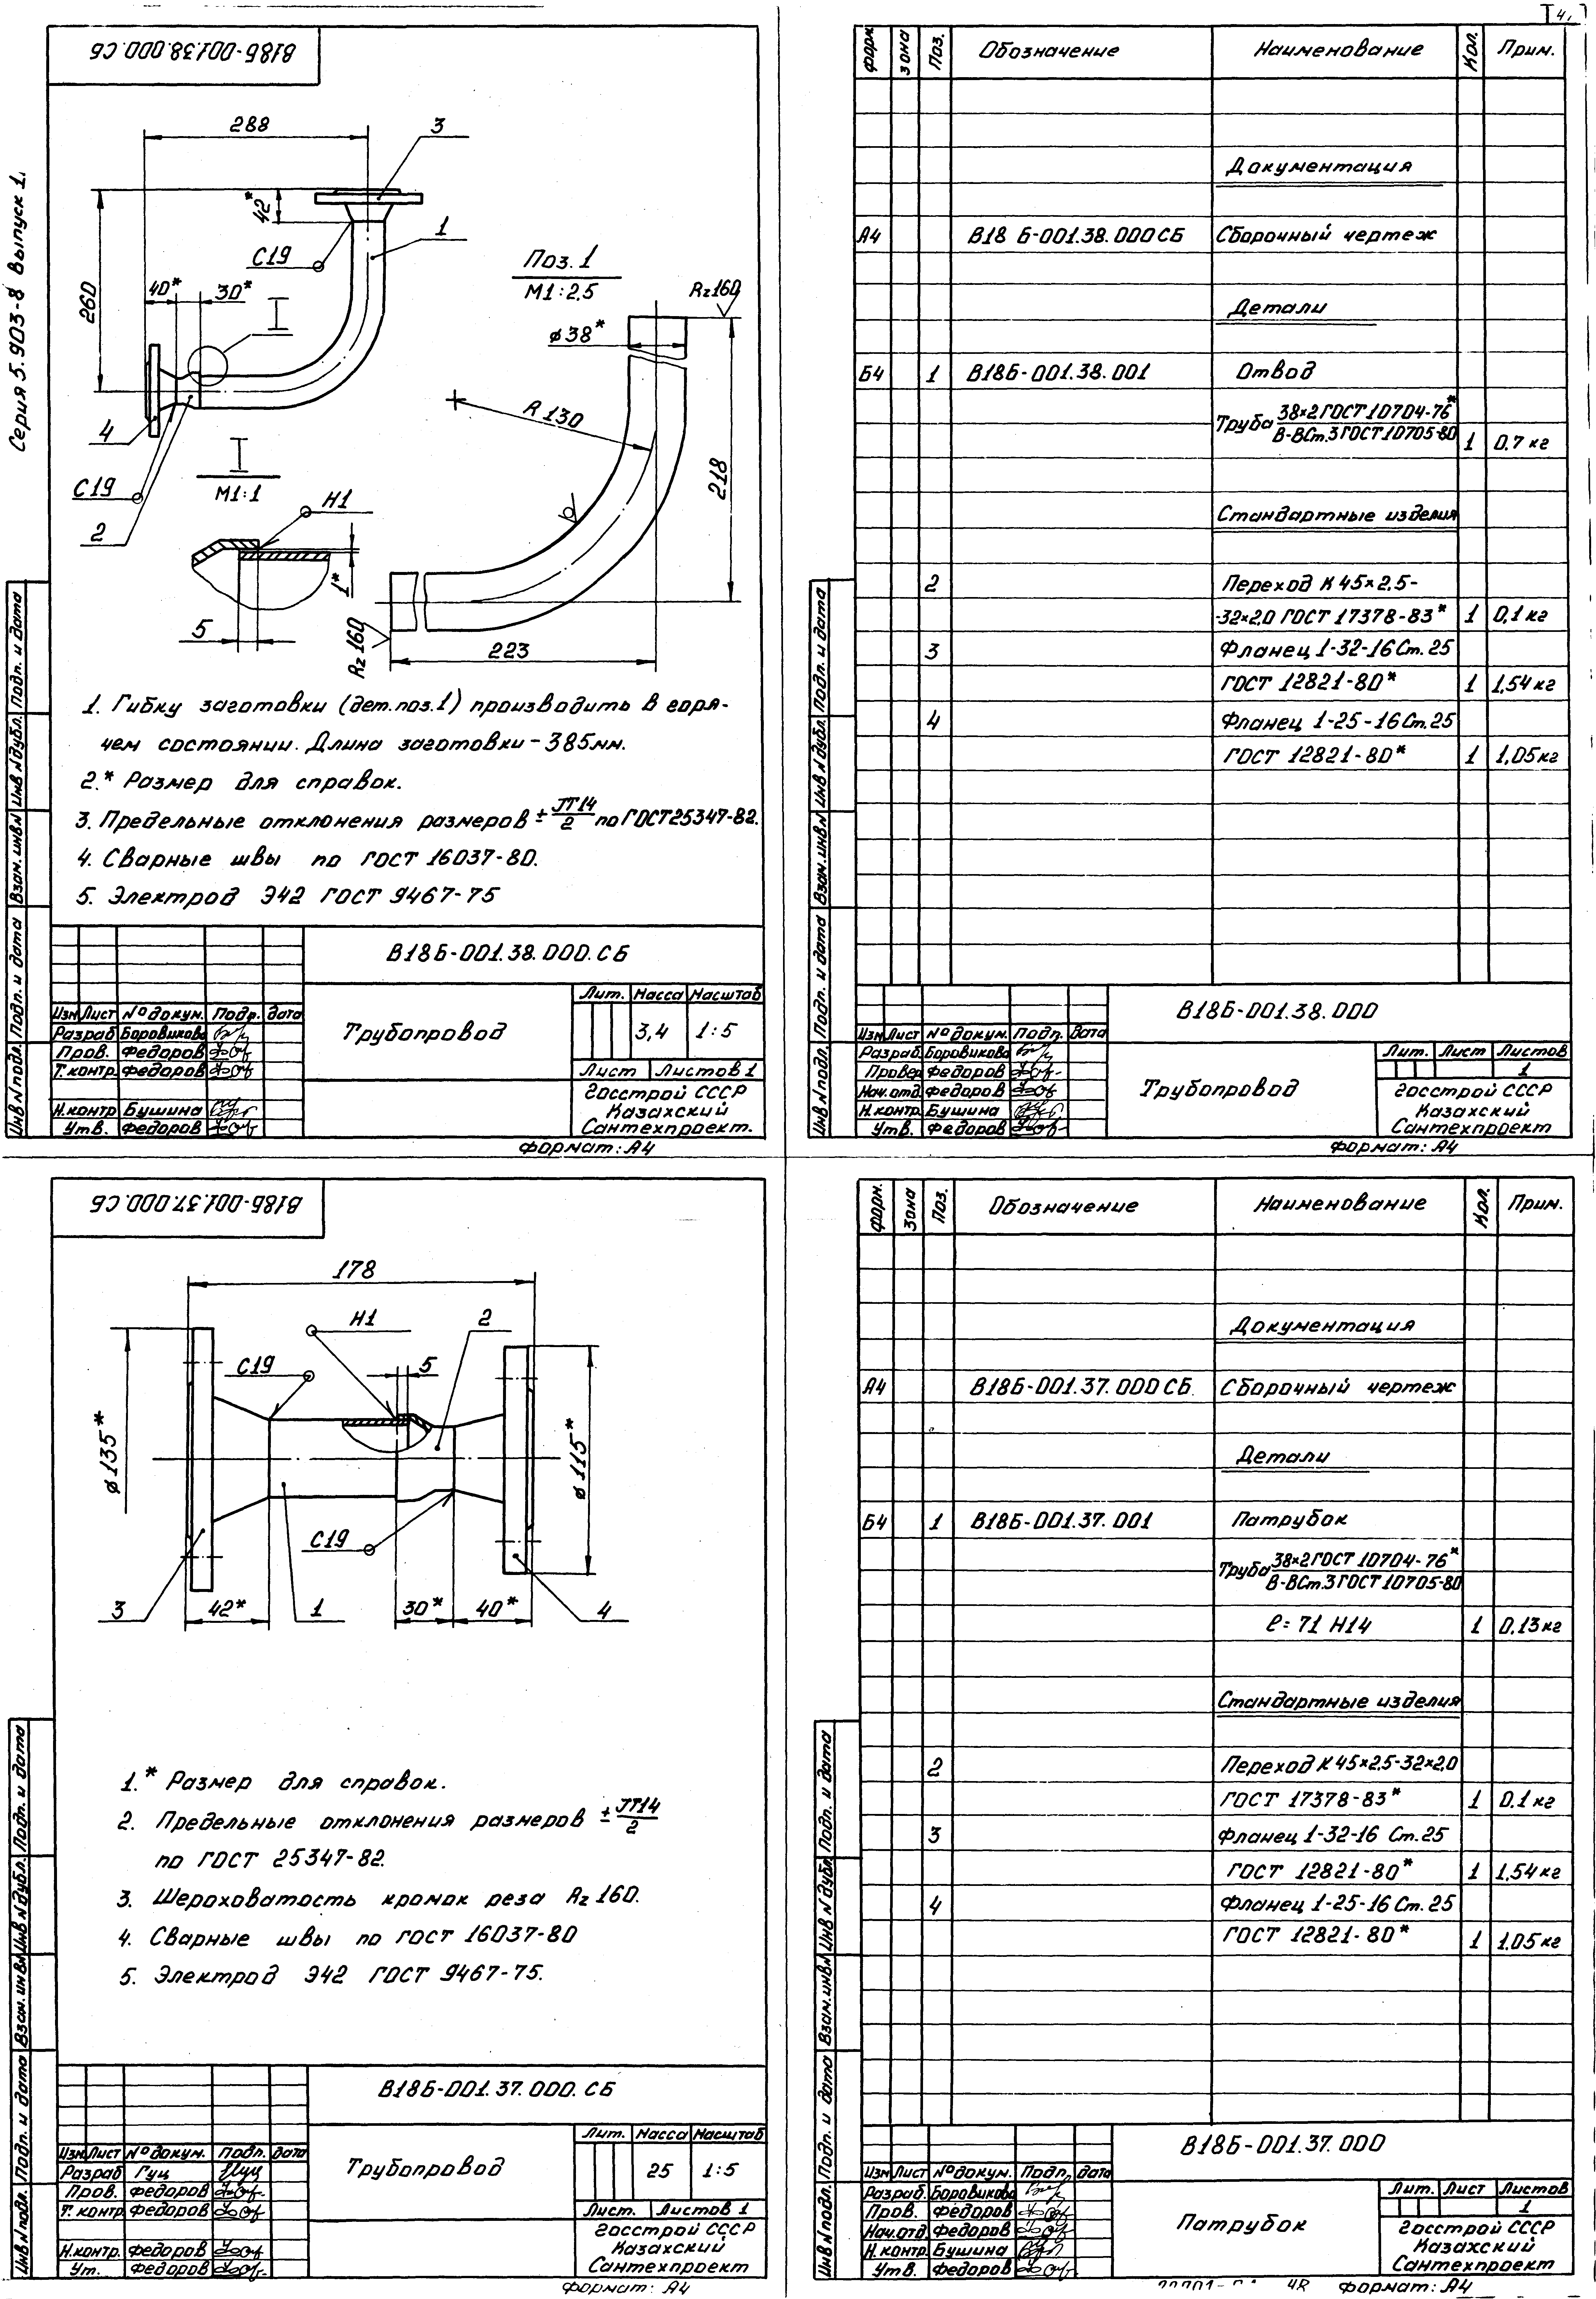 Серия 5.903-8 Выпуск 1.
В18Б-001.38.000.СБ
288
3
42*
1
С19
260
40*
30*
I
4
С19
2
I
М1:1
Н1
1*
5
Поз.1
М1:2,5
Rz160
ø38*
R130
218
Rz160
223
1. Гибку заготовки (дет.поз.1) производить в горя-
чем состоянии. Длина заготовки-385мм.
2.* Размер для справок.
3. Предельные отклонения размеров ± JT14/2 по ГОСТ25347-82.
4. Сварные швы по ГОСТ 16037-80.
5. Электрод Э42 ГОСТ 9467-75
Инв N подл. Подп. и дата Взам. инв N Инв N дубл. Подп. и дата
В18Б-001.38.000.СБ
Изм Лист N° докум. Подр. дата
Разраб Боровикова
Пров. Федоров
Т. контр. Федоров
Н.контр Бушина
Утв. Федоров
Трубопровод
Лит. Масса Масштаб
3,4 1:5
Лист Листов 1
Госстрой СССР
Казахский
Сантехпроект.
Формат: А4
4.
Форм Зона Поз. Обозначение Наименование Кол. Прим.
Документация
А4 В18 Б-001.38.000СБ Сборочный чертеж
Детали
Б4 1 В18Б-001.38.001 Отвод
Труба 38×2 ГОСТ 10704-76*
В-ВСт.3 ГОСТ 10705-80 1 0.7 кг
Стандартные изделия
2 Переход К 45×2,5-
-32×2,0 ГОСТ 17378-83* 1 0,1 кг
3 Фланец 1-32-16 Ст.25
ГОСТ 12821-80* 1 1,54 кг
4 Фланец 1-25-16 Ст.25
ГОСТ 12821-80* 1 1,05 кг
Инв N подл. Подп. и дата Взам. инв N Инв N дубл. Подп. и дата
В18Б-001.38.000
Изм Лист N° докум. Подп. Дата
Разраб. Боровикова
Провер Федоров
Нач.отд. Федоров
Н.контр. Бушина
Утв. Федоров
Трубопровод
Лит. Лист Листов
1
Госстрой СССР
Казахский
Сантехпроект
Формат: А4
В18Б-001.37.000.СБ
178
Н1
2
С19
5
ø135*
ø115*
С19
3
42*
1
30*
40*
4
1.* Размер для справок.
2. Предельные отклонения размеров ± JT14/2
по ГОСТ 25347-82.
3. Шероховатость кромок реза Rz 160.
4. Сварные швы по ГОСТ 16037-80
5. Электрод Э42 ГОСТ 9467-75.
Инв N подл. Подп. и дата Взам. инв N Инв N дубл. Подп. и дата
В18Б-001.37.000.СБ
Изм Лист N° докум. Подп. Дата
Разраб Гуц
Пров. Федоров
Т. контр. Федоров
Н.контр. Федоров
Ут. Федоров
Трубопровод
Лит. Масса Масштаб
25 1:5
Лист. Листов 1
Госстрой СССР
Казахский
Сантехпроект
Формат: А4
Форм. Зона Поз. Обозначение Наименование Кол. Прим.
Документация
А4 В18Б-001.37.000СБ. Сборочный чертеж
Детали
Б4 1 В18Б-001.37.001 Патрубок
Труба 38×2 ГОСТ 10704-76*
В-ВСт.3 ГОСТ 10705-80
ℓ= 71 Н14 1 0,13 кг
Стандартные изделия
2 Переход К 45×2,5-32×2,0
ГОСТ 17378-83* 1 0.1 кг
3 Фланец 1-32-16 Ст.25
ГОСТ 12821-80* 1 1,54 кг
4 Фланец 1-25-16 Ст.25
ГОСТ 12821-80* 1 1.05 кг
Инв N подл. Подп. и дата Взам. инв N Инв N дубл. Подп. и дата
В18Б-001.37.000
Изм Лист N° докум. Подп. дата
Разраб. Боровикова
Пров. Федоров
Нач.отд. Федоров
Н.контр. Бушина
Утв. Федоров
Патрубок
Лит. Лист Листов
1
Госстрой СССР
Казахский
Сантехпроект
48 Формат: А4